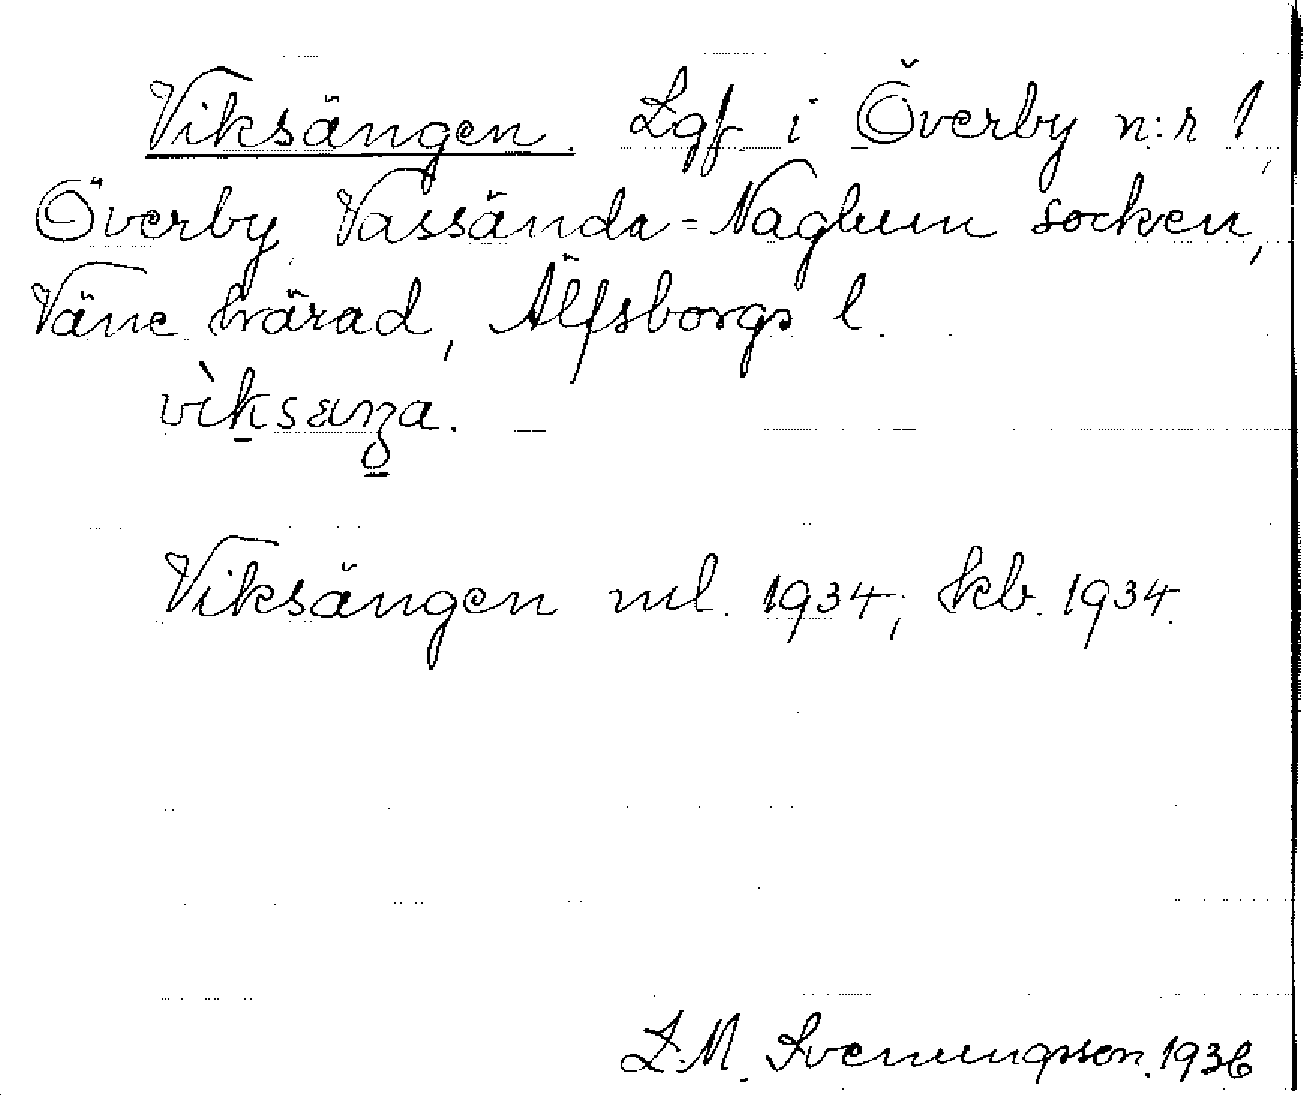 Viksängen. Lgf i Överby n:r 1,
Överby Vassända=Naglum socken,
Väne härad, Älfsborgs l.
vìksæŋa.
Viksängen ml. 1934; kb. 1934.
L.M. Svenungsson. 1936